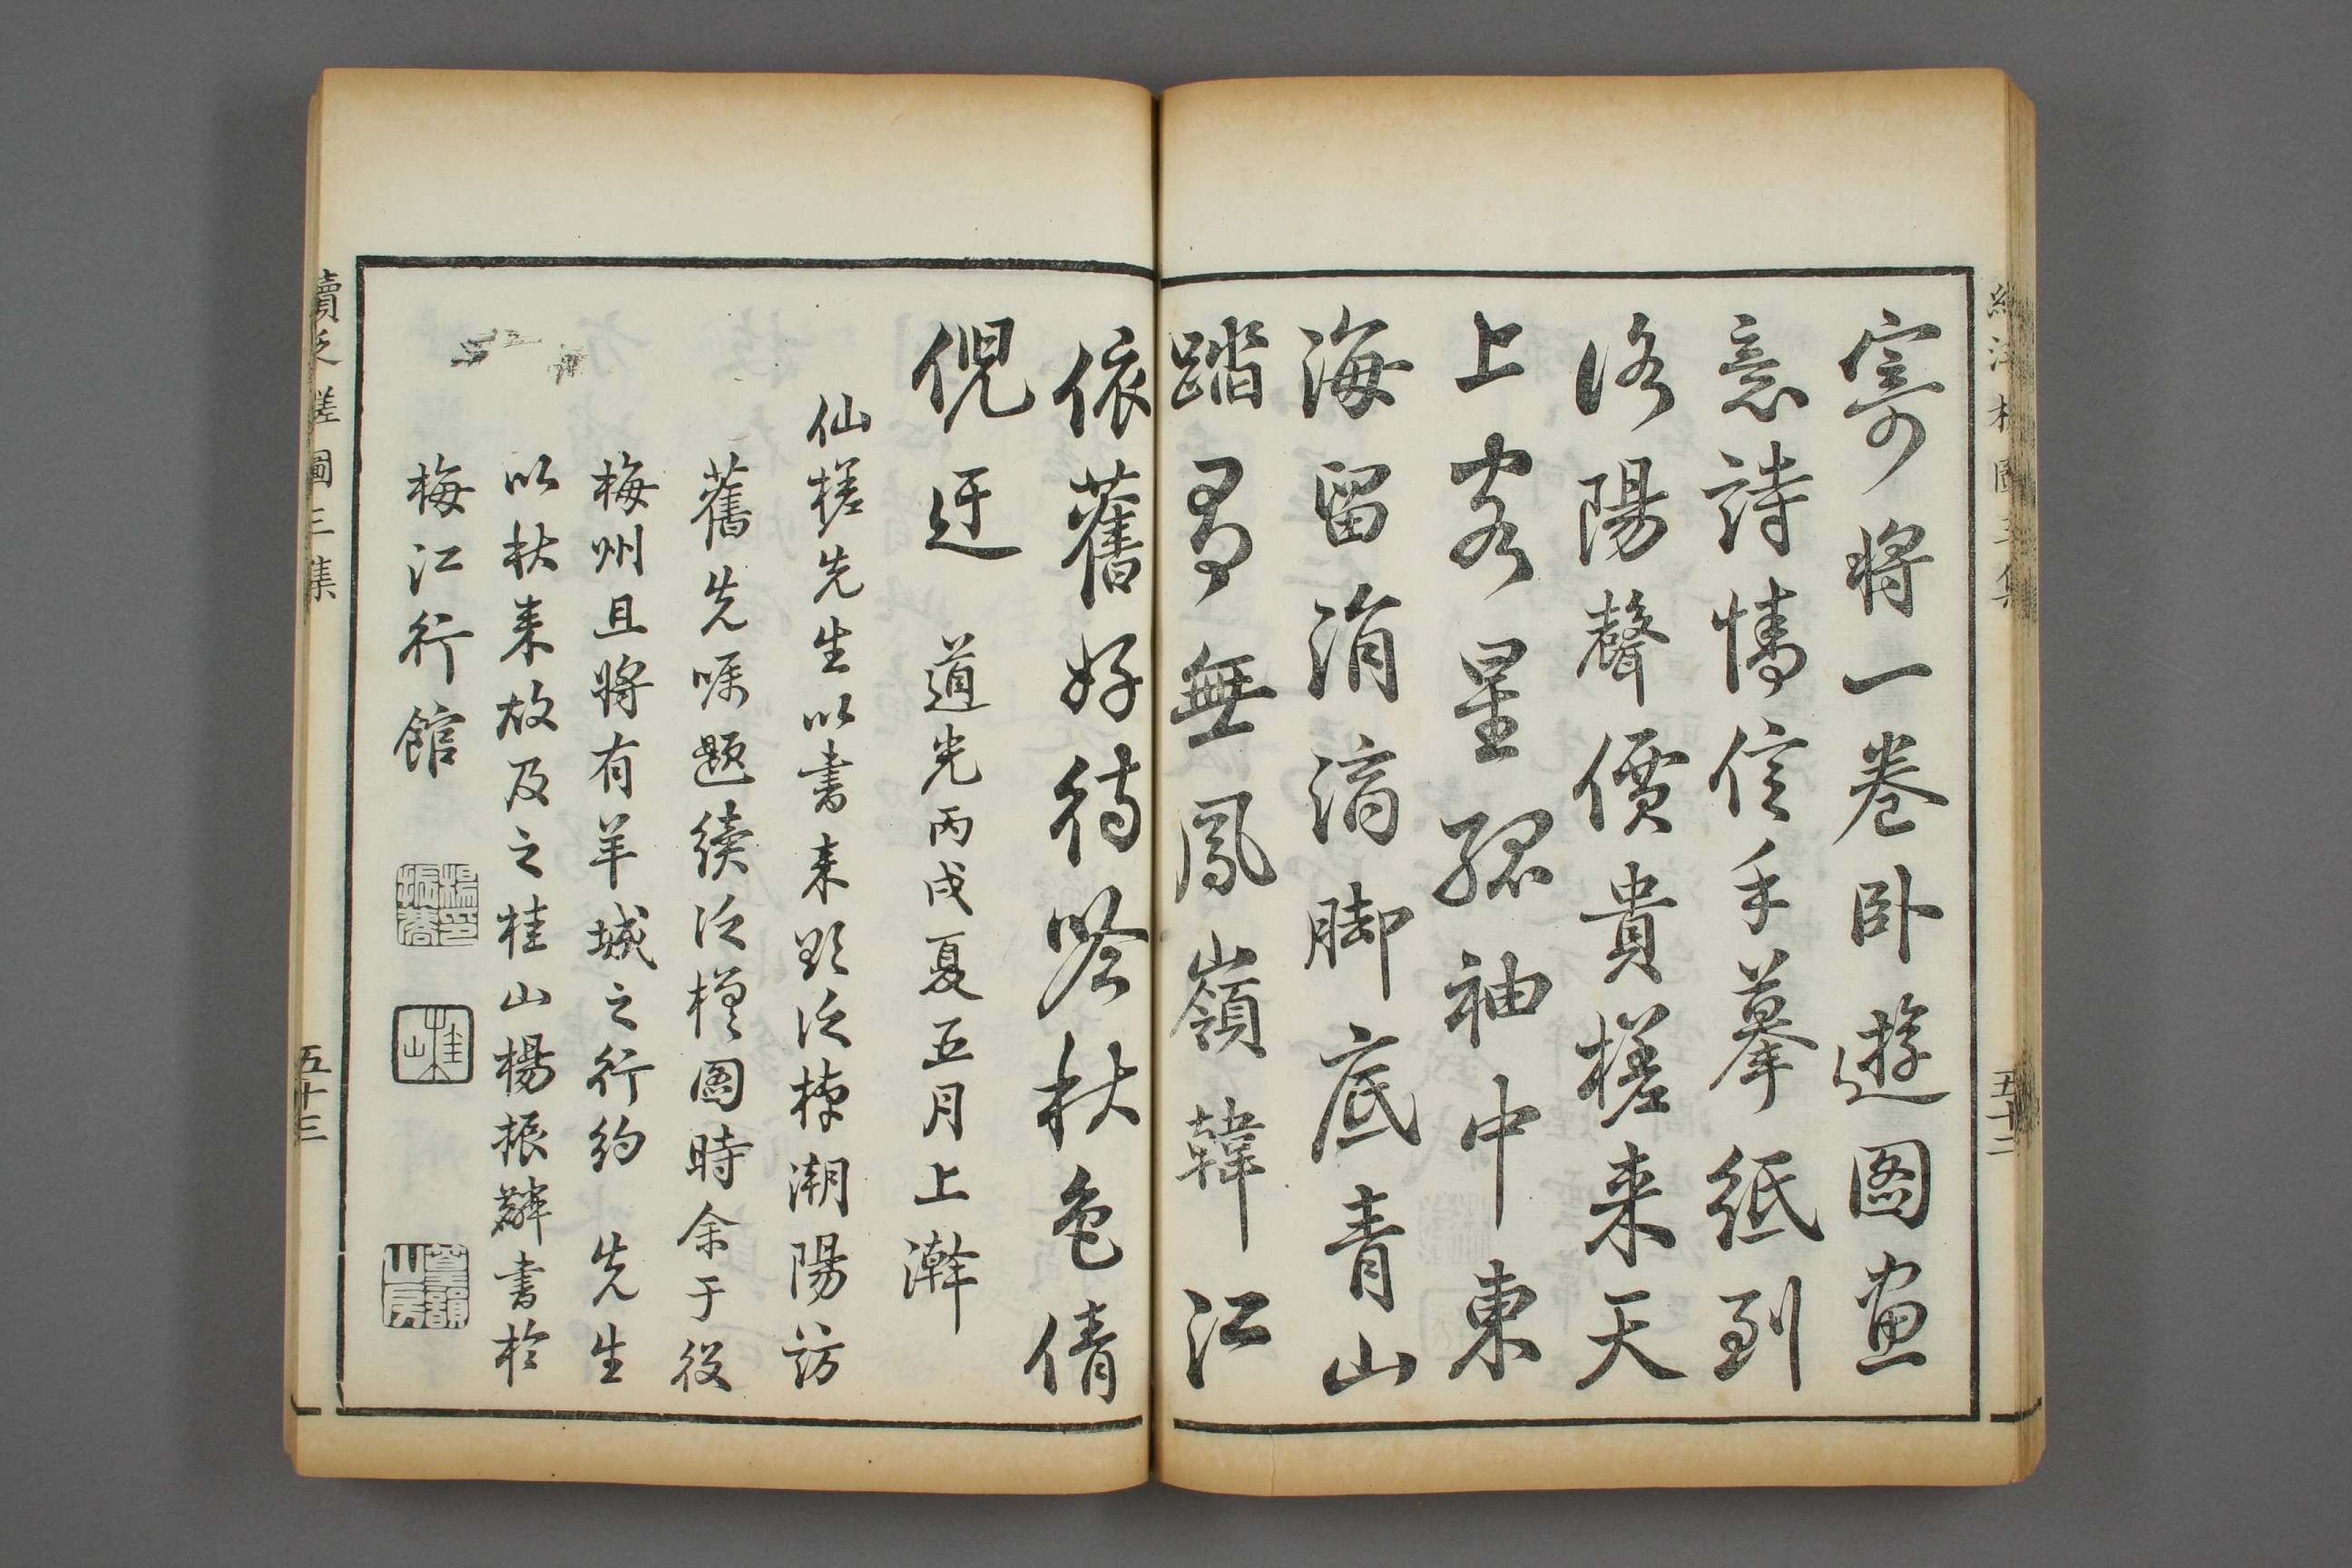 寄將一卷卧遊圖畫
意詩情信手摹紙到
洛陽聲價貴槎来天
上客星孤袖中東
海留涓滴脚底青山
踏有無鳳嶺韓江
依舊好待吟秋色倩
倪迂
道光丙戌夏五月上澣
仙槎先生以書来招泛棹潮陽訪
舊先囑題續泛槎圖時余于役
梅州且將有羊城之行約 先生
以秋来故及之桂山楊振麟書於
梅江行館
楊印振麟
桂山
山房
續泛槎圖三集
五十三
五十二